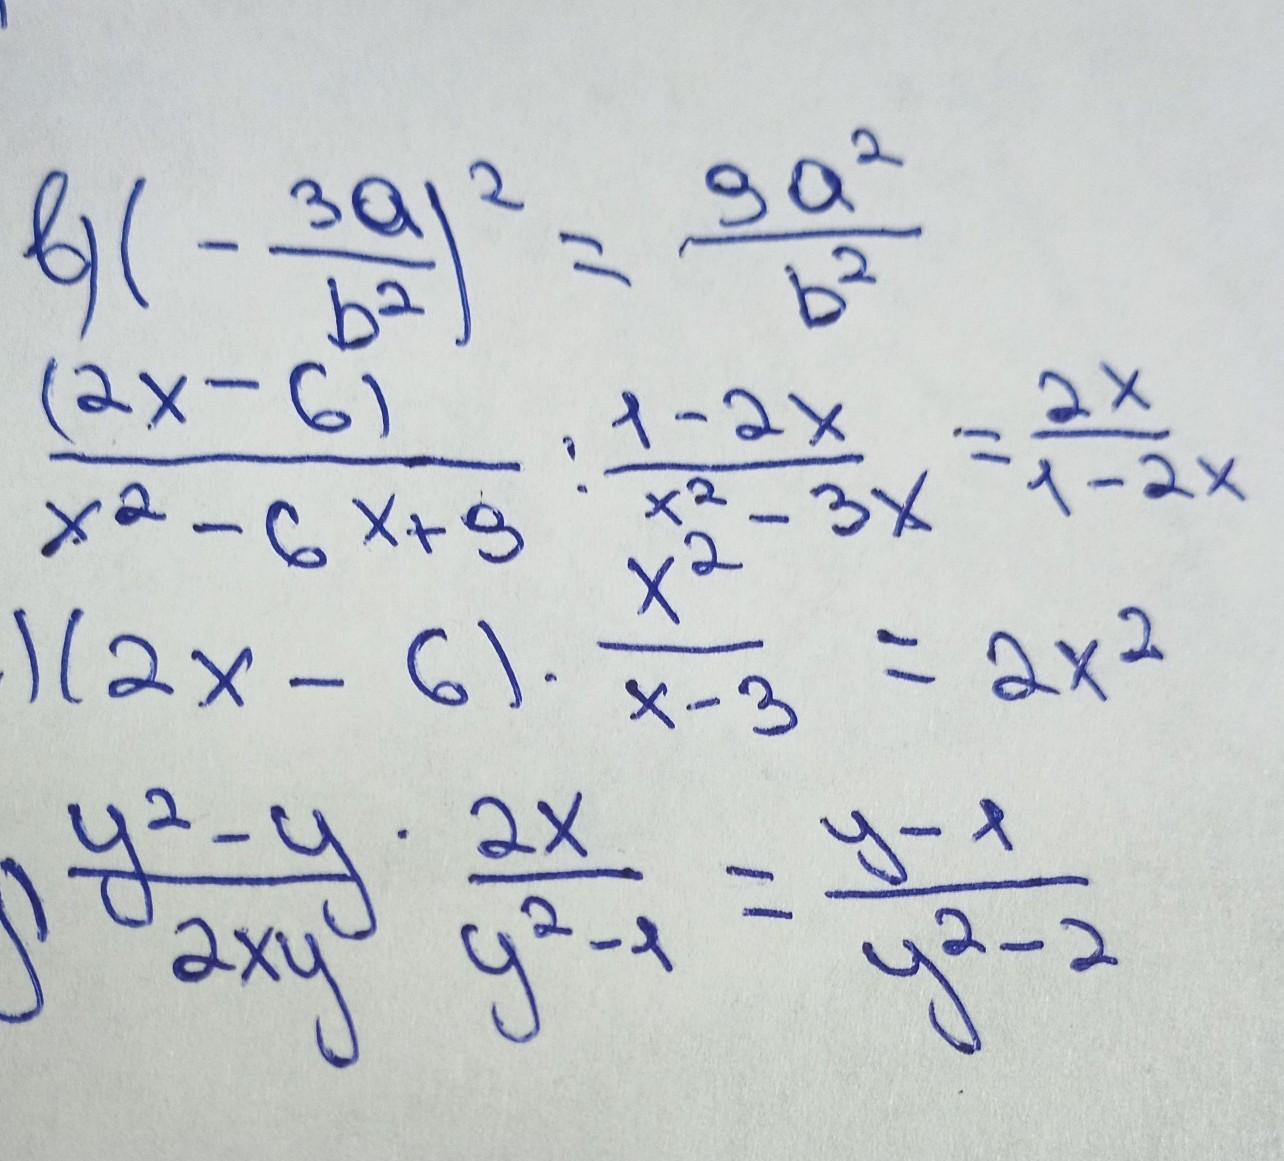 в) (- 3a/b²)² = 9a²/b²
(2x-6)/(x²-6x+9) : (1-2x)/(x²-3x) = 2x/(1-2x)
)(2x-6)·x²/(x-3) = 2x²
) (y²-y)/(2xy) · 2x/(y²-1) = (y-1)/(y²-2)